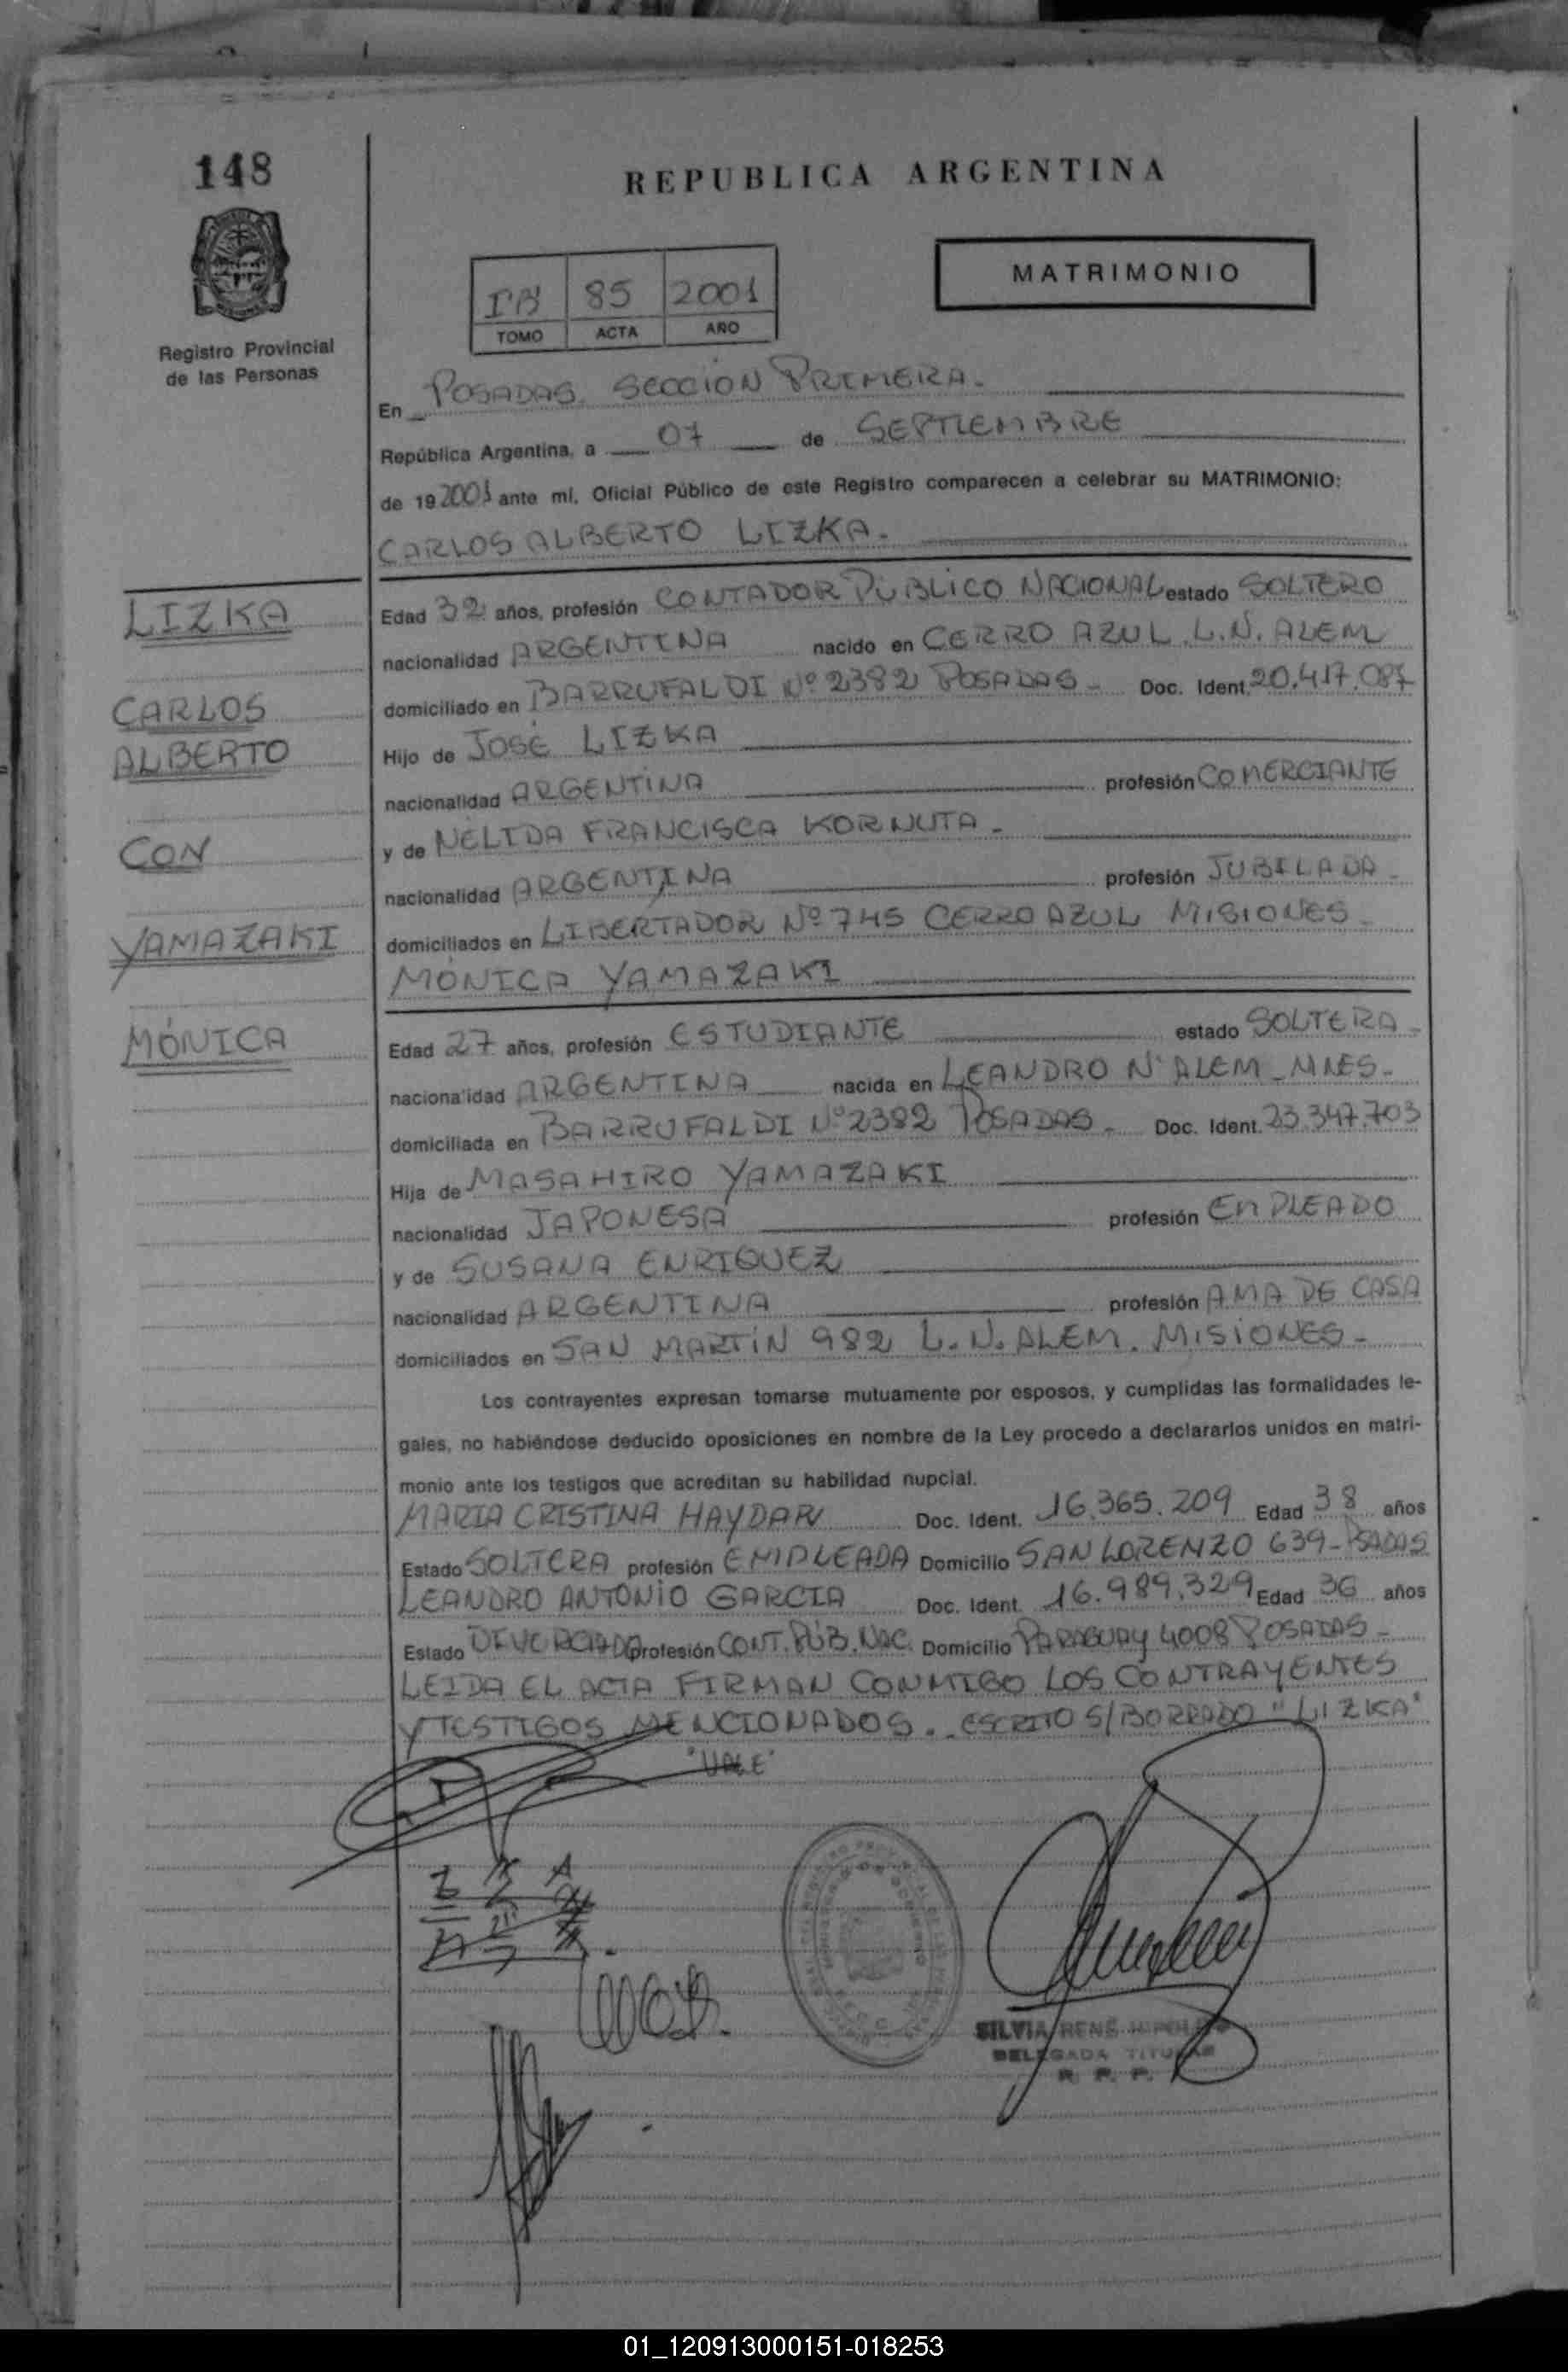 148
REPUBLICA ARGENTINA
MATRIMONIO
85 2001
TOMO ACTA AÑO
Registro Provincial
de las Personas
En POSADAS. SECCION PRIMERA.
República Argentina, a 07 de SEPTIEMBRE
de 19 2001 ante mí, Oficial Público de este Registro comparecen a celebrar su MATRIMONIO:
CARLOS ALBERTO LIZKA.
LIZKA
CARLOS
ALBERTO
CON
YAMAZAKI
MÓNICA
Edad 32 años, profesión CONTADOR PÚBLICO NACIONAL estado SOLTERO
nacionalidad ARGENTINA nacido en CERRO AZUL. L.N. ALEM
domiciliado en BARRUFALDI Nº 2382 POSADAS - Doc. Ident. 20.417.087
Hijo de JOSÉ LIZKA
nacionalidad ARGENTINA profesión COMERCIANTE
y de NÉLIDA FRANCISCA KORNUTA -
nacionalidad ARGENTINA profesión JUBILADA -
domiciliados en LIBERTADOR Nº 745 CERRO AZUL MISIONES -
MÓNICA YAMAZAKI
Edad 27 años, profesión ESTUDIANTE estado SOLTERA -
nacionalidad ARGENTINA nacida en LEANDRO N. ALEM - MNES -
domiciliada en BARRUFALDI Nº 2382 POSADAS - Doc. Ident. 23.347.703
Hija de MASAHIRO YAMAZAKI
nacionalidad JAPONESA profesión EMPLEADO
y de SUSANA ENRIQUEZ
nacionalidad ARGENTINA profesión AMA DE CASA
domiciliados en SAN MARTÍN 982 L.N. ALEM. MISIONES -
Los contrayentes expresan tomarse mutuamente por esposos, y cumplidas las formalidades le-
gales, no habiéndose deducido oposiciones en nombre de la Ley procedo a declararlos unidos en matri-
monio ante los testigos que acreditan su habilidad nupcial.
MARIA CRISTINA HAYDAR Doc. Ident. 16.365.209 Edad 38 años
Estado SOLTERA profesión EMPLEADA Domicilio SAN LORENZO 639 - PSADAS
LEANDRO ANTONIO GARCIA Doc. Ident. 16.989.329 Edad 36 años
Estado DIVORCIADO profesión CONT. PÚB. NAC. Domicilio PARAGUAY 4008 POSADAS -
LEIDA EL ACTA FIRMAN CONMIGO LOS CONTRAYENTES
Y TESTIGOS MENCIONADOS. - ESCRITO S/BORRADO "LIZKA"
"VALE"
SILVIA RENÉ
DELEGADA TITULAR
R. P. P.
01_120913000151-018253